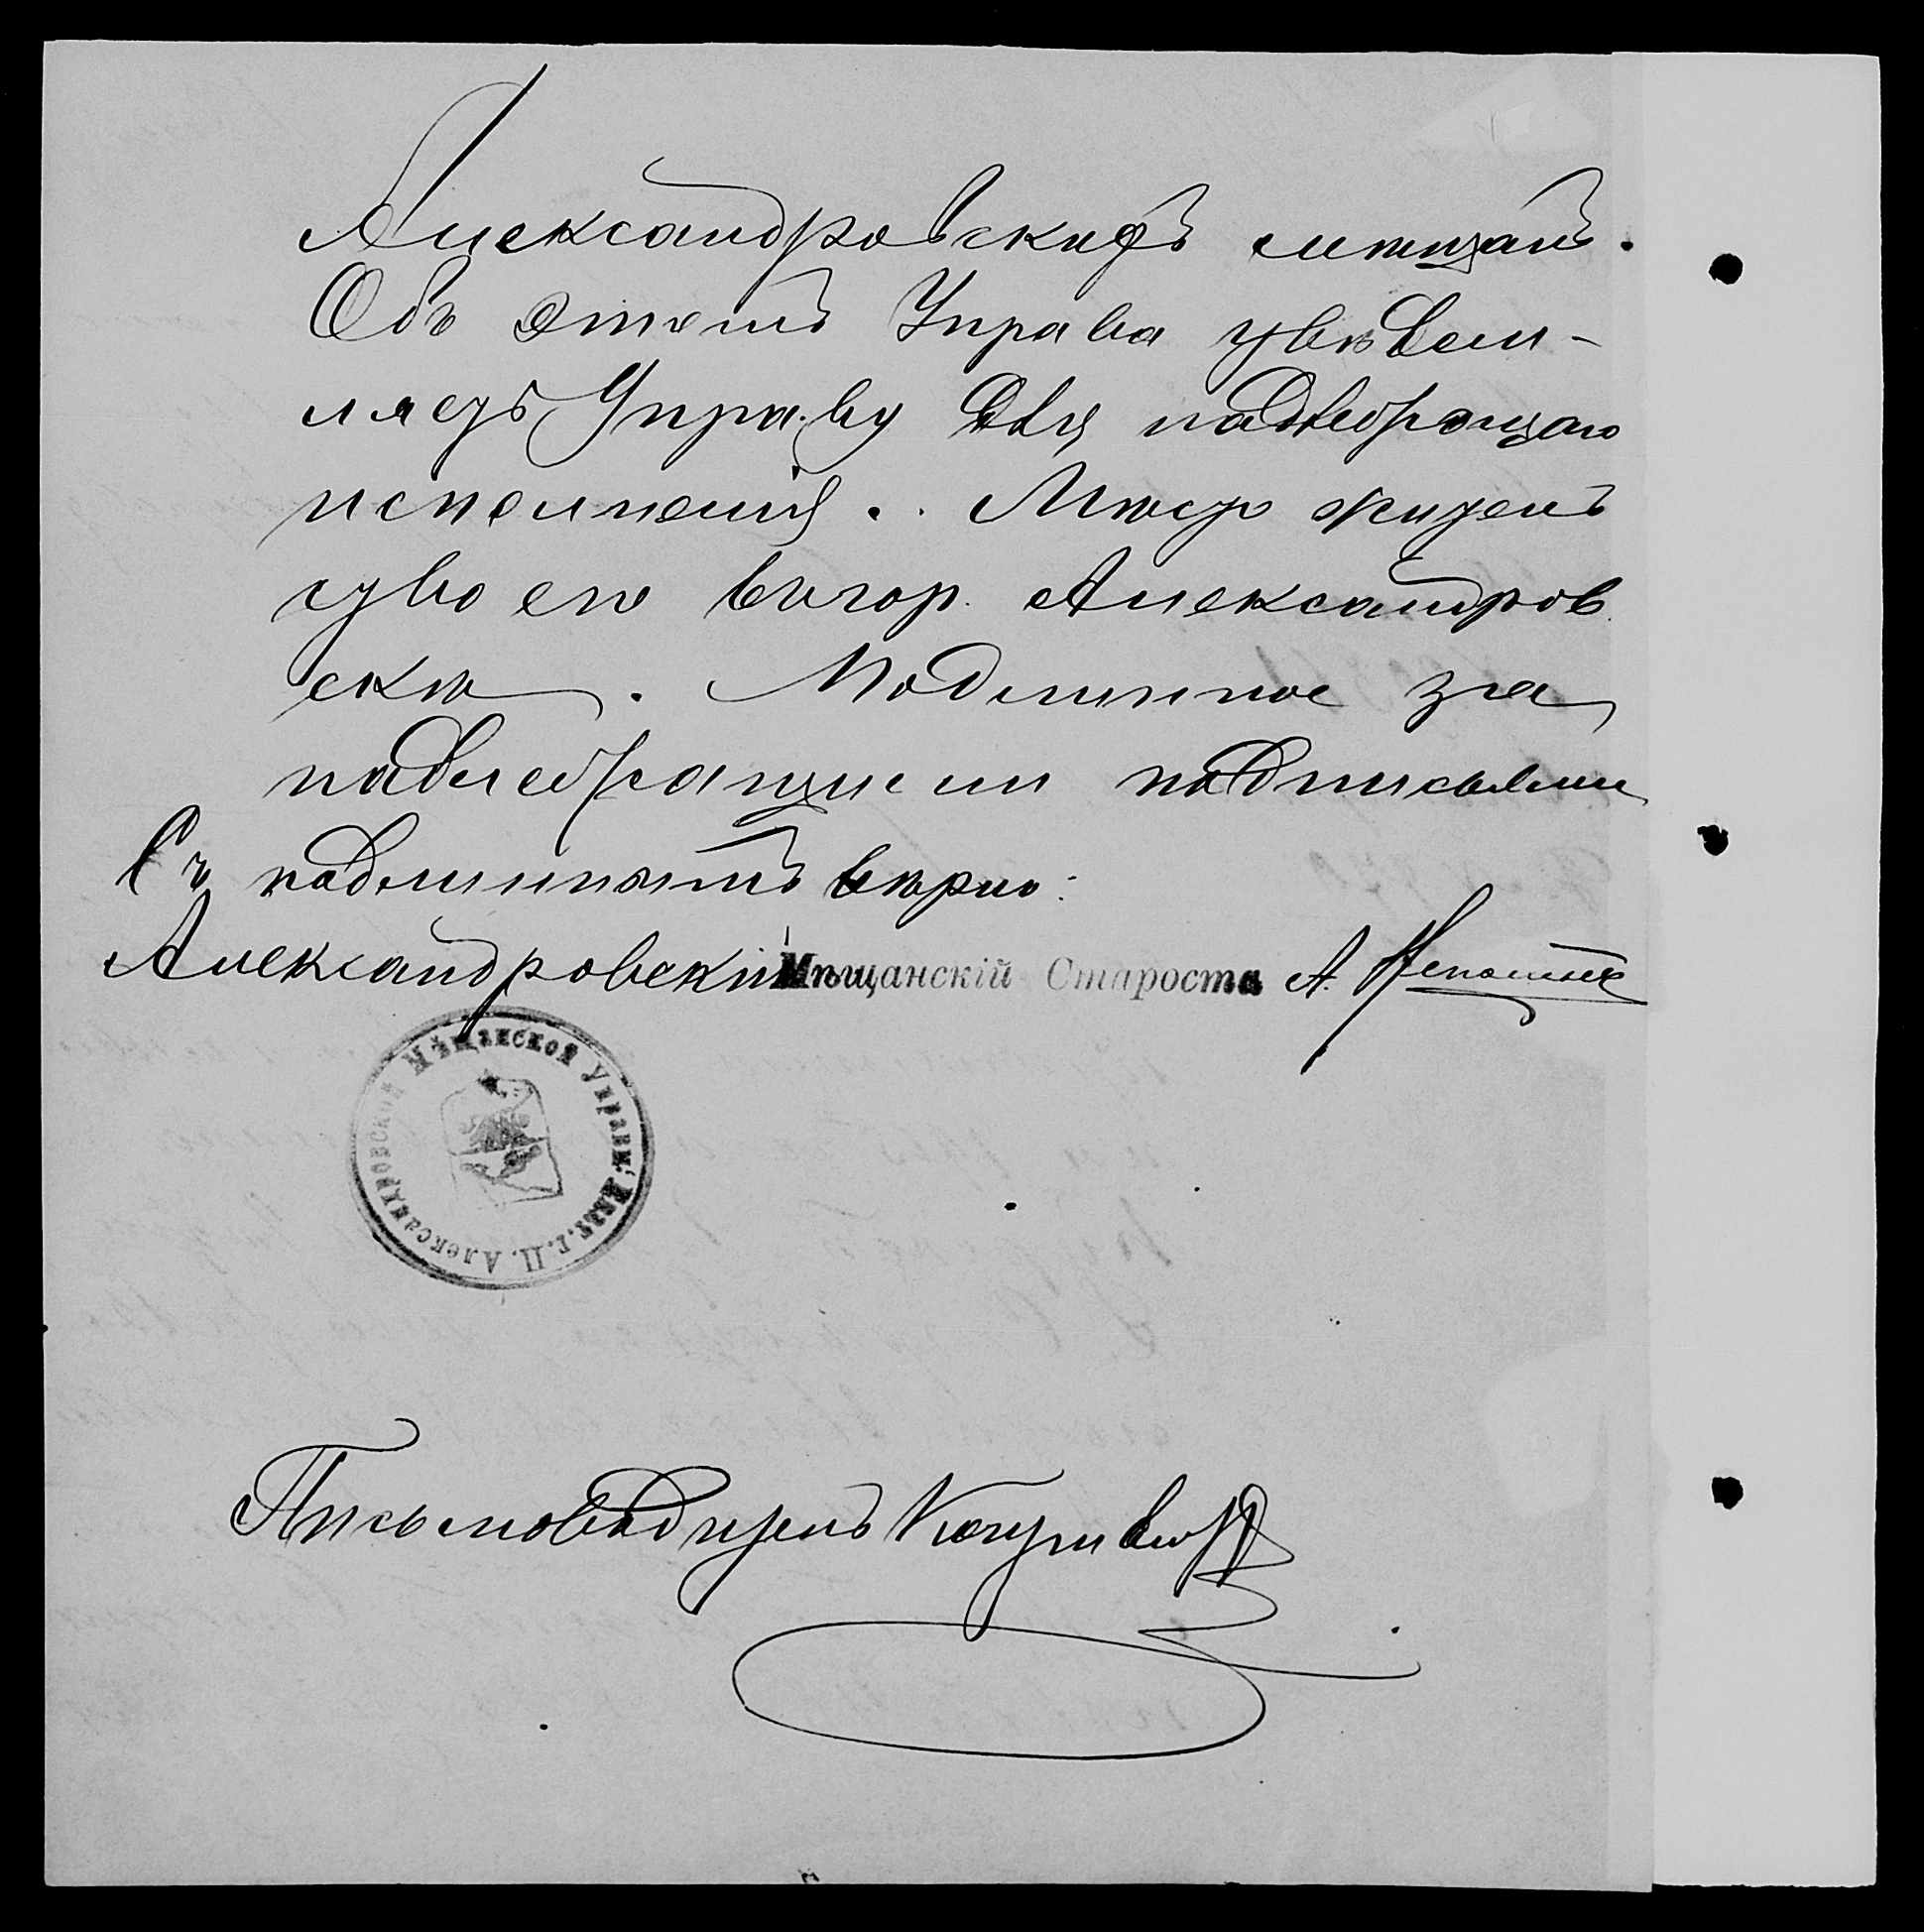 Александровскихъ мѣщанъ.
Объ этомъ Управа увѣдом-
ляетъ Управу для надлежащаго
исполненія. Мѣсто житель
ство его въ гор. Александров
скѣ. Подлинное за
надлежащими подписями
Съ подлиннымъ вѣрно:
Александровскій Мѣщанскій Староста А.
Александровской Мѣщанской Управы, Екат. Г.
Письмоводитель